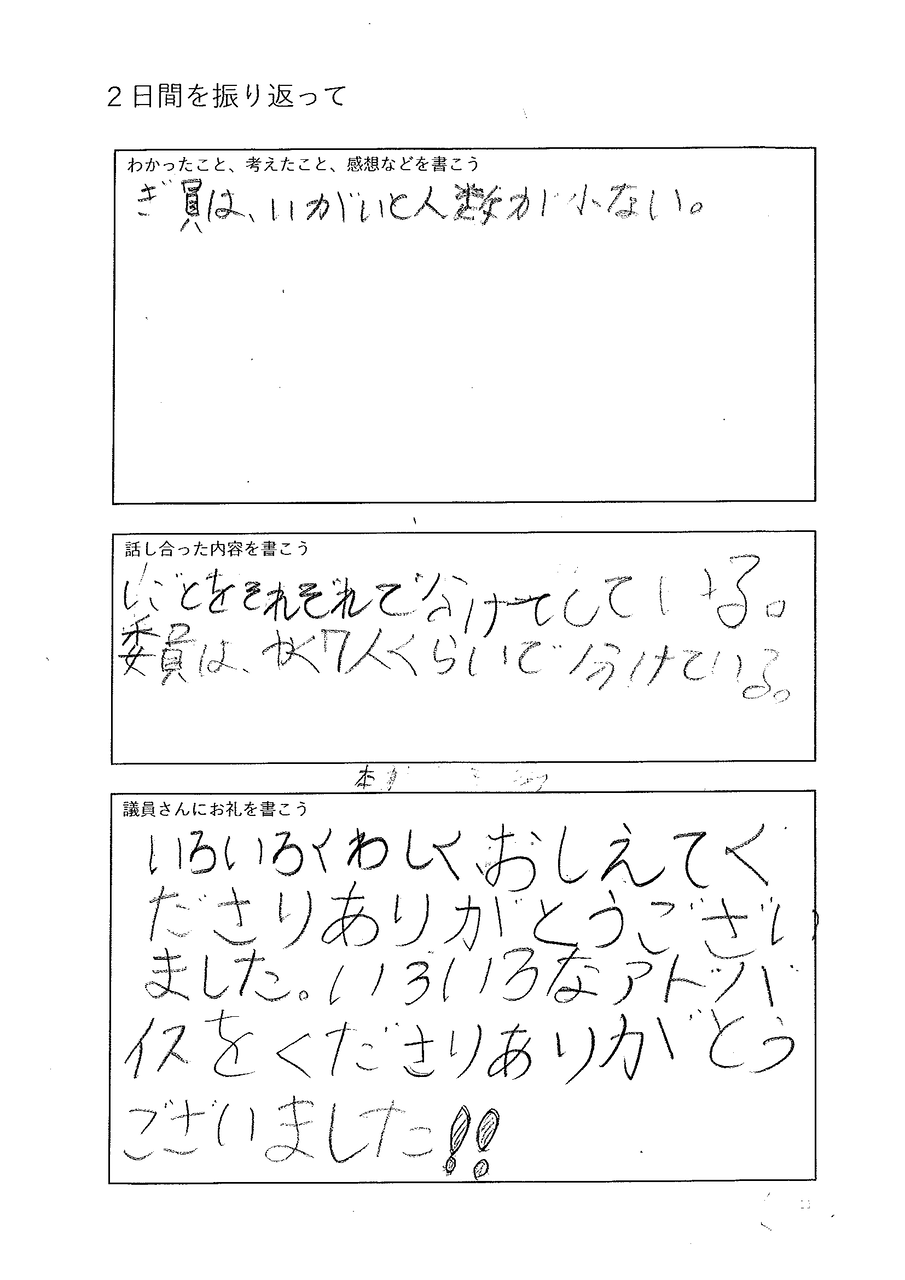 2日間を振り返って
わかったこと、考えたこと、感想などを書こう
ぎ員は、いがいと人数が小ない。
話し合った内容を書こう
しごとをそれぞれで分けてしている。
委員は、かく7人くらいで分けている。
議員さんにお礼を書こう
いろいろくわしくおしえてく
ださりありがとうござい
ました。いろいろなアドバ
イスをくださりありがとう
ございました!!